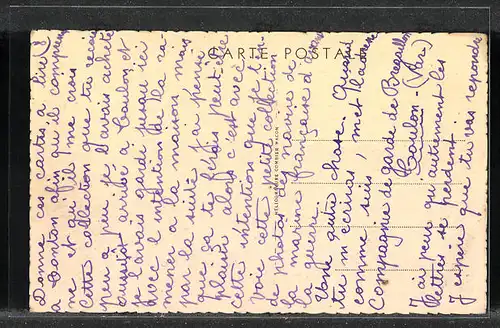 CARTE POSTALE
HÉLIOGRAVURE COMBIER MACON
Donne ces cartes à lire
a Tonton afin qu'il comprenne
et qu'il
cette collection que tu recois
peu a peu je l'avais acheté
aussitot arrivé à Toulon et
je l'avais gardé jusqu'ici
avec l'intention de la ra-
mener a la maison mais
par la suite j'ai pensé
que ça te ferais peut-être
plaisir alors c'est avec
cette intention que je t'en-
voie cette petite collection
de photos des navires de
la marine française d'avant
la guerre.
Une autre chose. Quand
tu m'écriras, met l'adresse
comme suis,
Compagnie de garde de Bregaillon
Toulon - (Var)
J'ai peur qu'autrement les
lettres se perdent.
J'espère que tu vas repondre